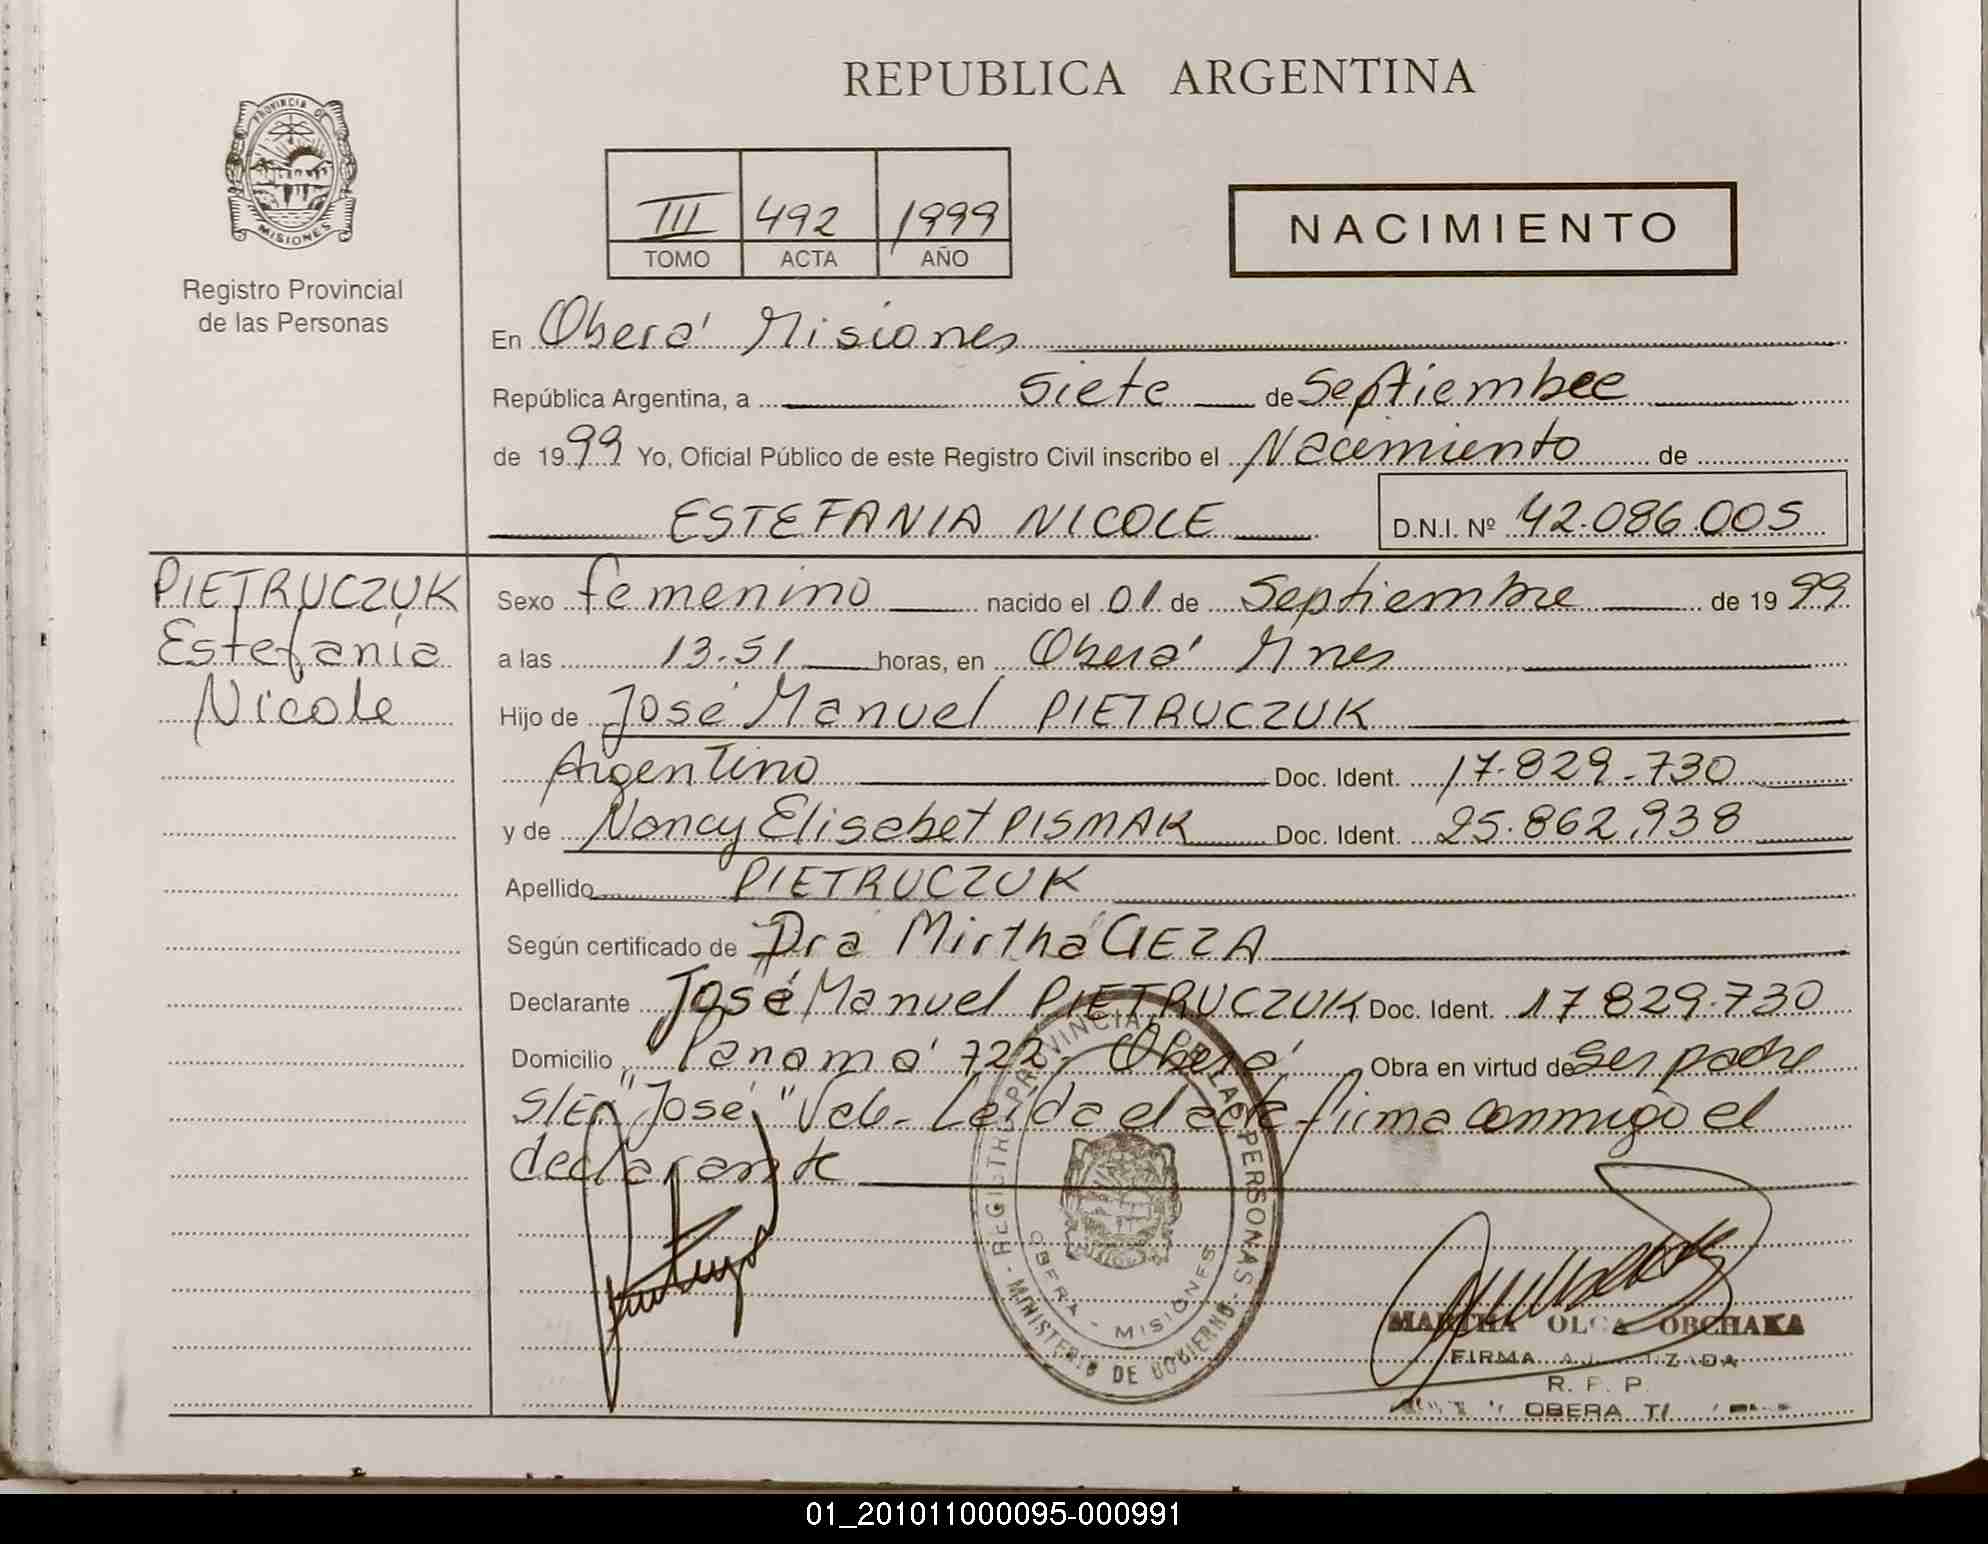 REPUBLICA ARGENTINA
PROVINCIA DE
MISIONES
Registro Provincial
de las Personas
III 492 1999
TOMO ACTA AÑO
NACIMIENTO
En Oberá Misiones
República Argentina, a siete de Septiembre
de 1999 Yo, Oficial Público de este Registro Civil inscribo el Nacimiento de
ESTEFANIA NICOLE D.N.I. Nº 42.086.005
PIETRUCZUK
Estefania
Nicole
Sexo femenino nacido el 01 de Septiembre de 1999
a las 13.51 horas, en Oberá Mnes
Hijo de José Manuel PIETRUCZUK
Argentino Doc. Ident. 17.829.730
y de Nancy Elisabet PISMAK Doc. Ident. 25.862.938
Apellido PIETRUCZUK
Según certificado de Dra Mirtha GEZA
Declarante José Manuel PIETRUCZUK Doc. Ident. 17829.730
Domicilio Panamá 722 - Oberá Obra en virtud de ser padre
S/E "José" Vale - Leída el acta firma conmigo el
declarante
REGISTRO PROVINCIAL DE LAS PERSONAS - MINISTERIO DE GOBIERNO -
OBERA - MISIONES
MARTHA OLGA ORCHAKA
FIRMA
R. P. P.
OBERA
01_201011000095-000991